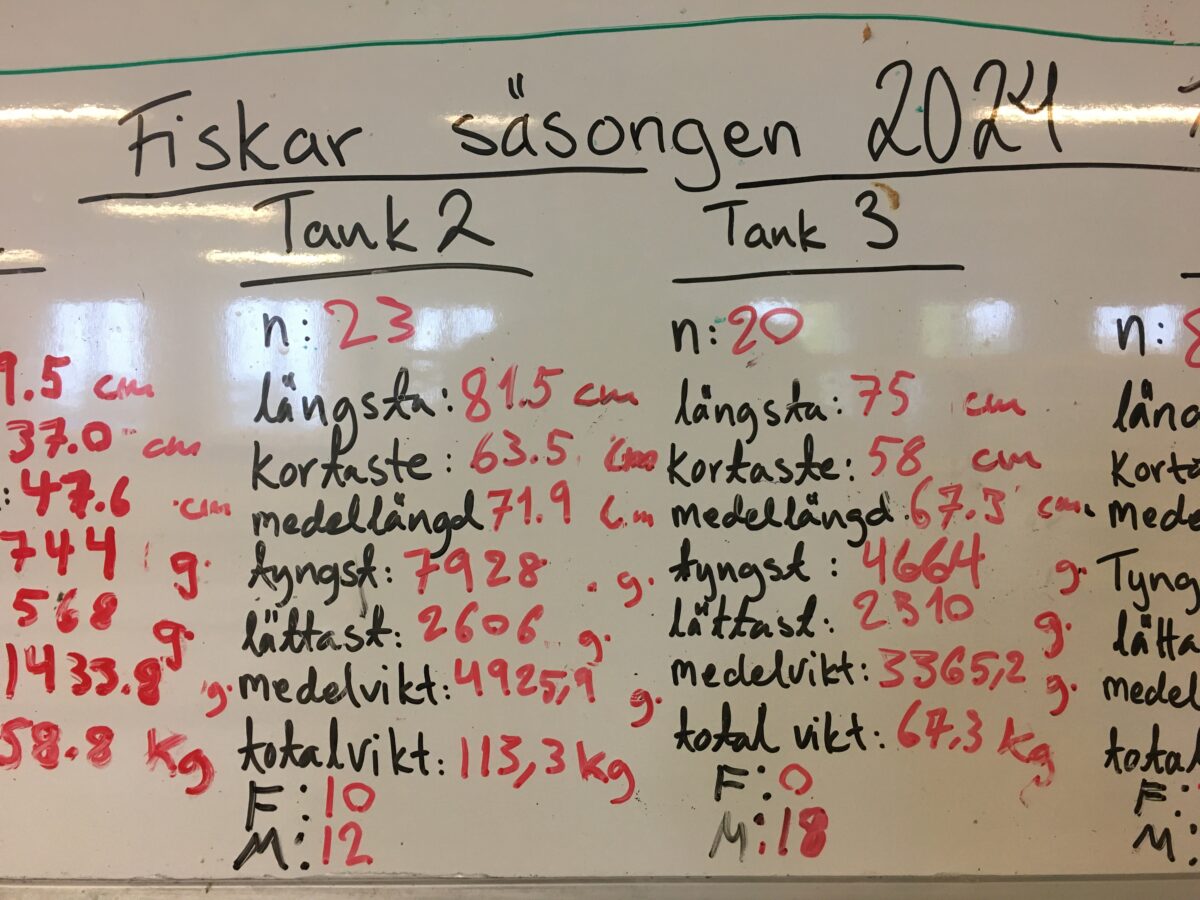 Fiskar säsongen 2021
9.5 cm
37.0 cm
: 47.6 cm
744 g.
568 g.
1433.8 g.
58.8 Kg
Tank 2
n: 23
längsta: 81.5 cm
kortaste: 63.5 cm
medellängd 71.9 cm
tyngst: 7928 g.
lättast: 2606 g.
medelvikt: 4925,9 g.
totalvikt: 113,3 kg
F: 10
M: 12
Tank 3
n: 20
längsta: 75 cm
kortaste: 58 cm
medellängd. 67.3 cm.
tyngst: 4664 g.
lättast: 2310 g.
medelvikt: 3365,2 g.
total vikt: 67.3 kg
F: 0
M: 18
n: 8
läng
korta
mede
Tyng
lätta
medel
total
F:
M: